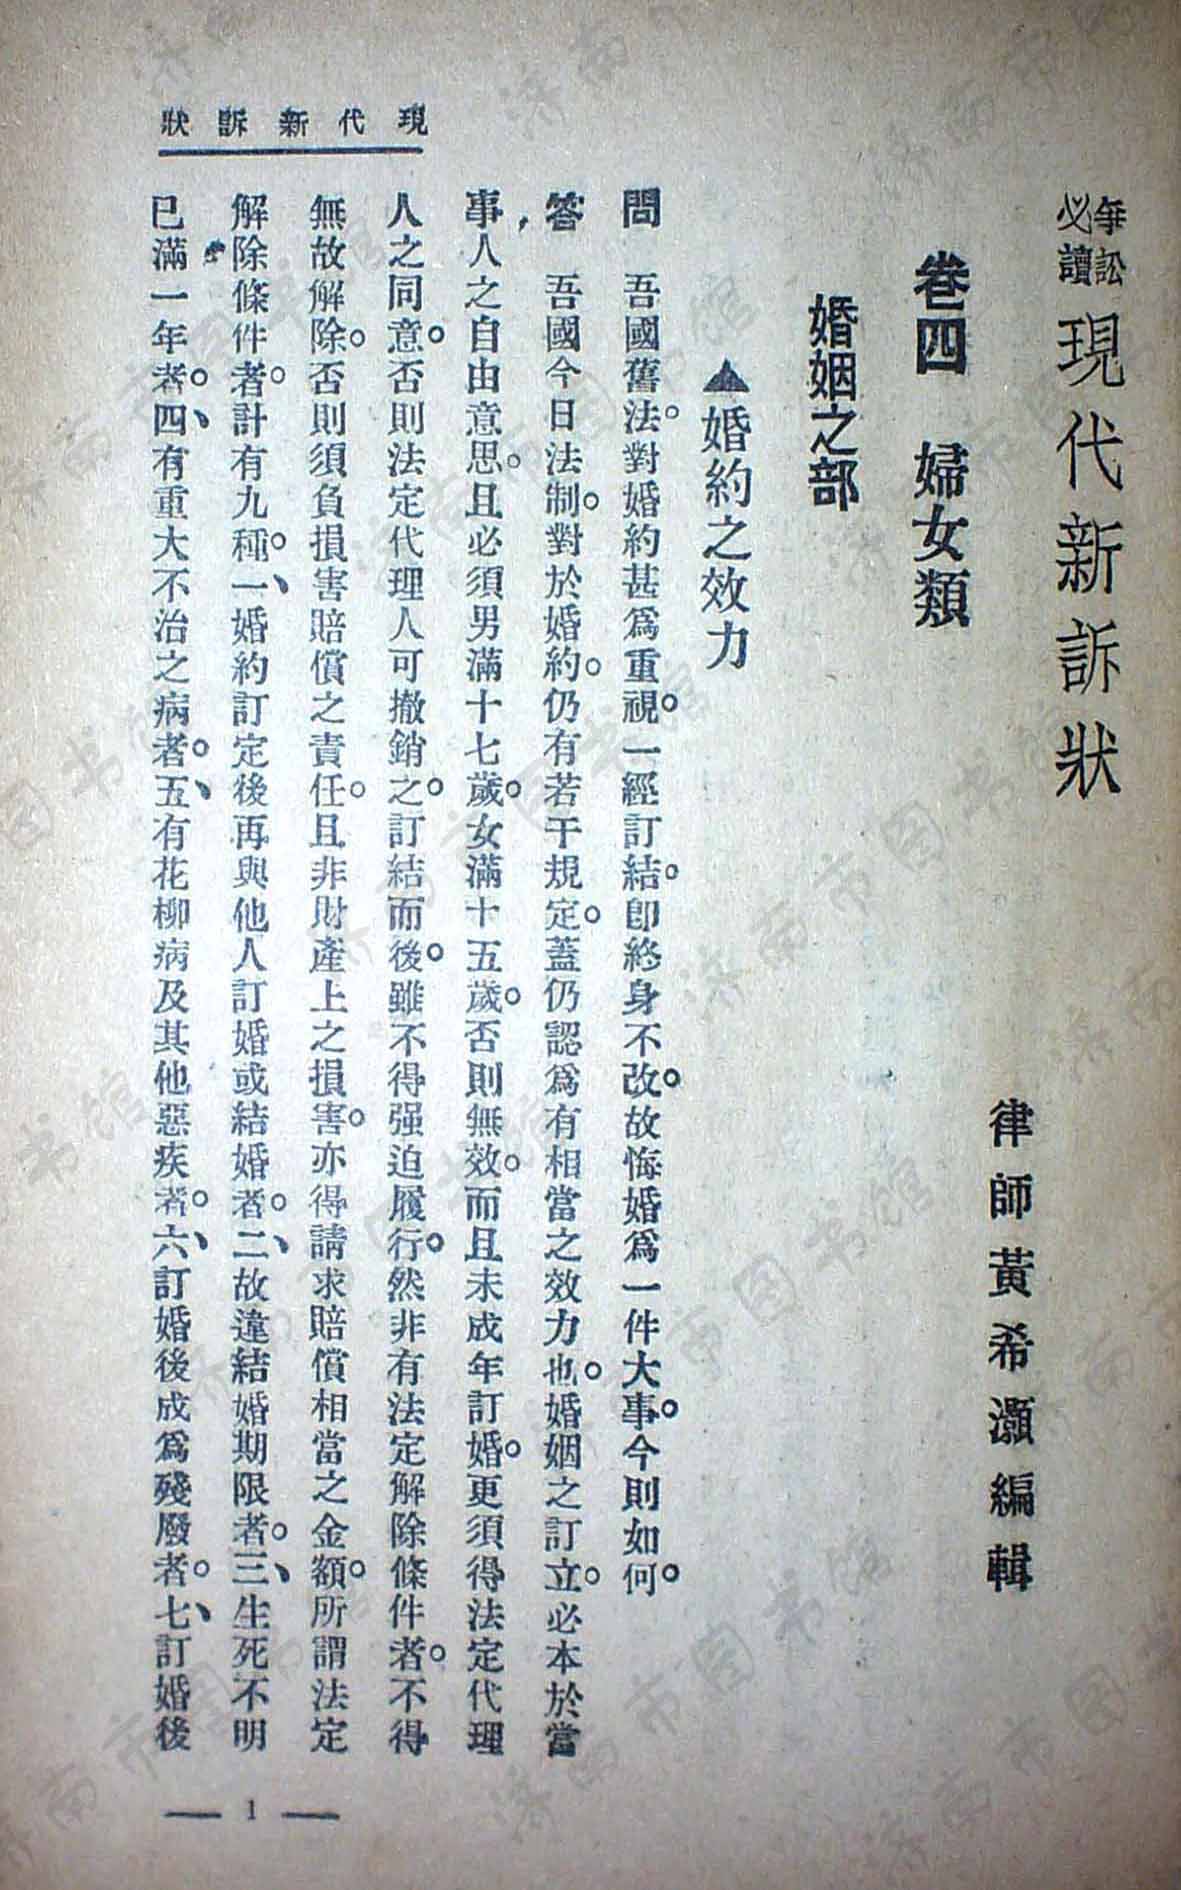 爭訟必讀 現代新訴狀
律師黃希灝編輯
卷四 婦女類
婚姻之部
▲婚約之效力
問 吾國舊法。對婚約甚爲重視。一經訂結。卽終身不改。故悔婚爲一件大事。今則如何。
答 吾國今日法制。對於婚約。仍有若干規定。蓋仍認爲有相當之效力也。婚姻之訂立。必本於當
事人之自由意思。且必須男滿十七歲。女滿十五歲。否則無效。而且未成年訂婚。更須得法定代理
人之同意。否則法定代理人可撤銷之。訂結而後。雖不得强迫履行。然非有法定解除條件者。不得
無故解除。否則須負損害賠償之責任。且非財產上之損害。亦得請求賠償相當之金額。所謂法定
解除條件者。計有九種。一、婚約訂定後再與他人訂婚或結婚者。二、故違結婚期限者。三、生死不明
已滿一年者。四、有重大不治之病者。五、有花柳病及其他惡疾者。六、訂婚後成爲殘廢者。七、訂婚後
現代新訴狀
— 1 —
济南市图书馆